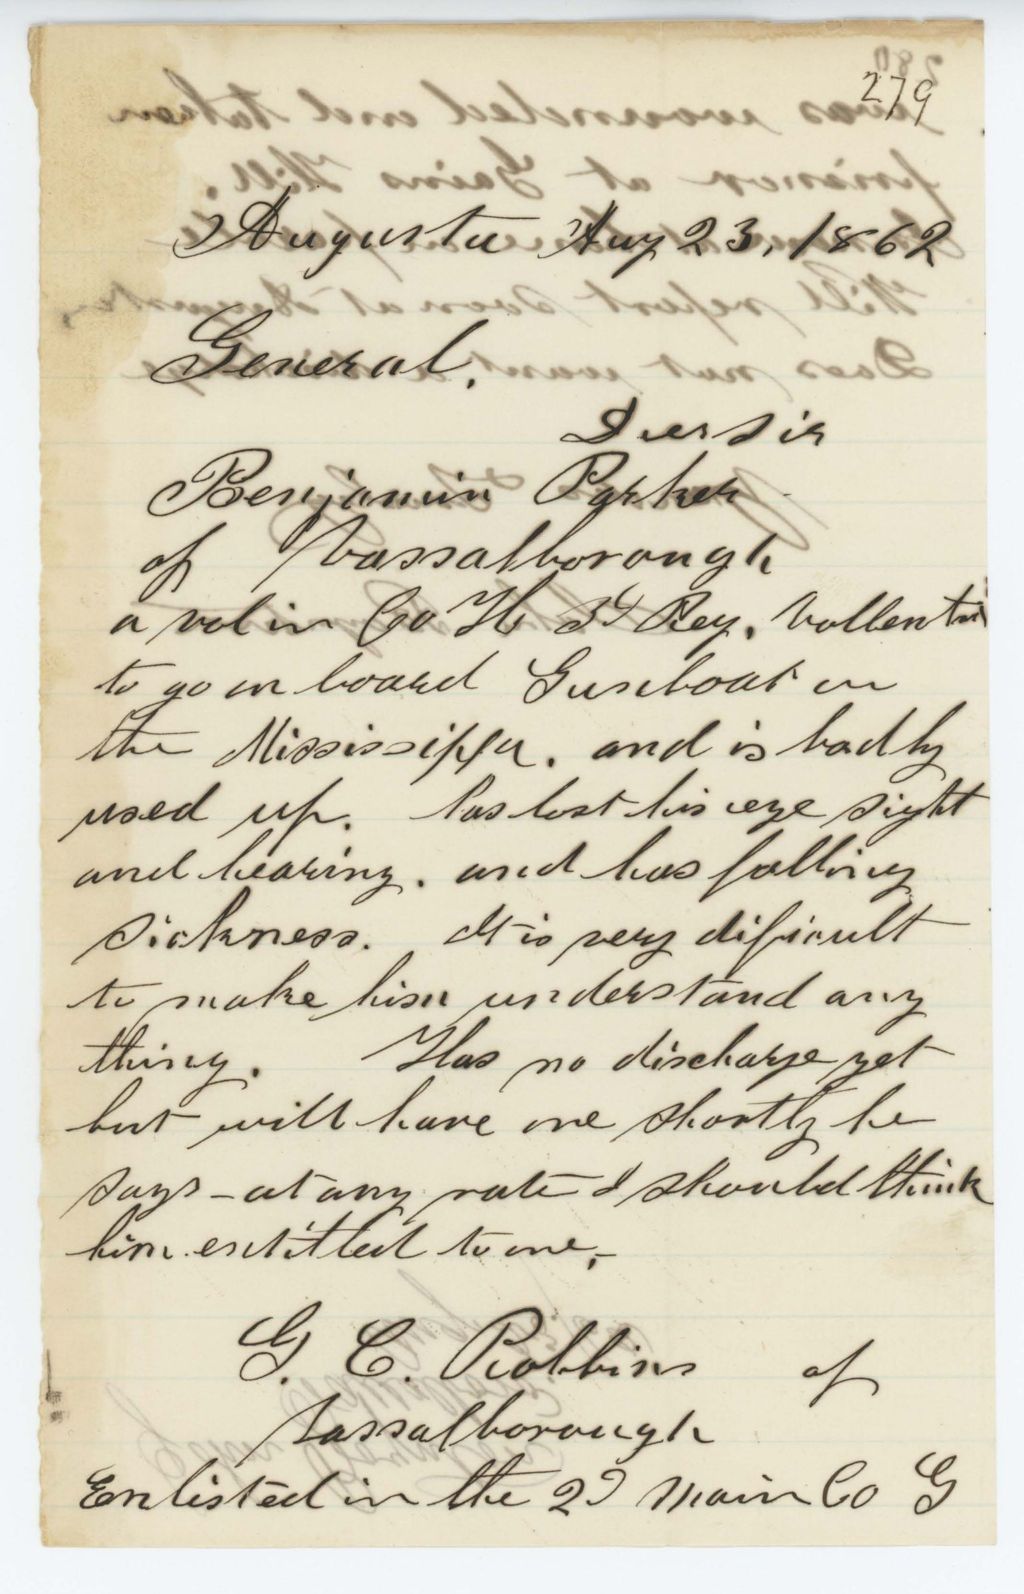 279
Augusta Aug 23, 1862
General,
Dear Sir
Benjamin Parker
of Vassalborough
a vol in Co H 3d Reg. Vollenteered
to go on board Gunboat on
the Mississippi. and is badly
used up. has lost his eye sight
and hearing. and has falling
sickness. It is very dificult
to make him understand any
thing. Has no discharge yet
but will have one shortly he
says - at any rate I should think
him entitled to one,-
G. C. Robbins of
Vassalborough
Enlisted in the 2d Main Co G